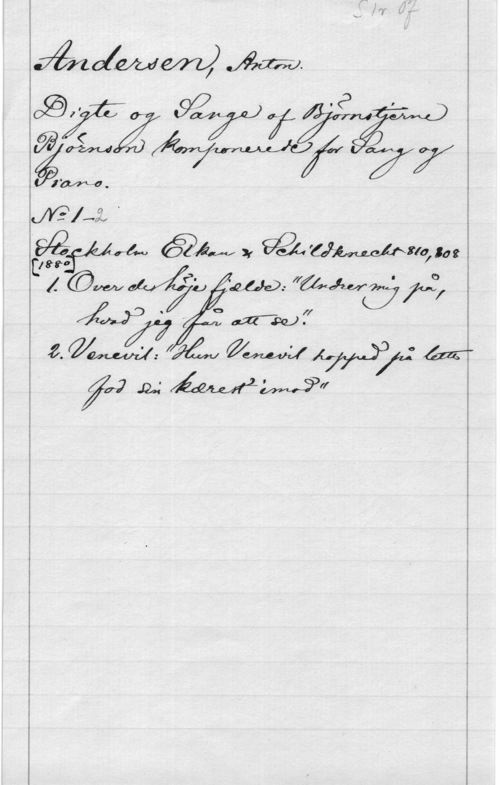 Str. 07
Andersen, Anton.
Digte og Sange af Björnstjerne
Björnson komponerede for Sang og
Piano.
Nº 1-2
Stockholm Elkan & Schildknecht 810, 808
[1880]
1. Over de höje fjelde: "Undrer mig på,
hvad jeg får att se".
2. Venevil: "Hun Venevil hopped på lette
fod sin kærest imod"